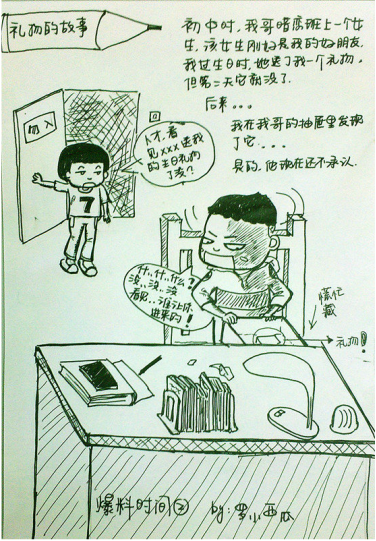 礼物的故事
初中时,我哥暗恋班上一个女
生,该女生刚好是我的好朋友
我过生日时,她送了我一个礼物,
但第二天它就没了.
后来...
我在我哥的抽屉里发现
了它....
是的.他现在还不承认.
勿入
回
人才.看
见xxx送我
的生日礼物
了没?
7
什、什、什么?
没、、没、、没
看见、、谁让你
进来的!
慌忙
藏
礼物!
爆料时间② by:罗小西瓜